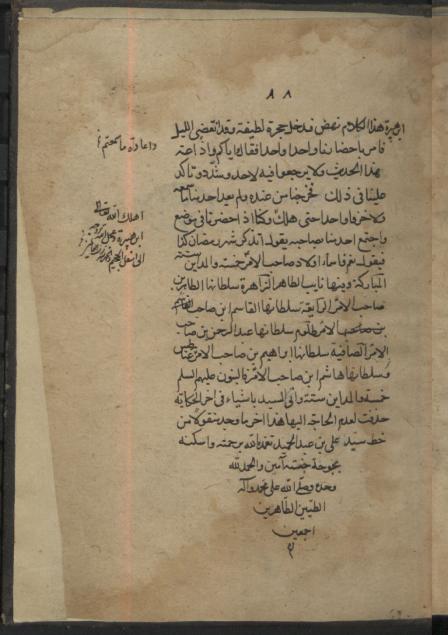 ٨٨
هبيرة هذا الكلام نهض ودخل حجرة لطيفة وقد انقضى الليل
فامر باحضارنا واحدا واحدا فقال اياكم واذاعته
هذا الحديث ولا يرجعوا فيه لاحد وشدد وتاكد
علينا في ذلك فخرجنا من عنده ولم يعد احدنا
ولا حرفا واحدا حتى هلك وكنا اذا حضرنا في موضع
واجتمع احدنا بصاحبه يقول اتذكر شهر رمضان كذا
فيقول نعم فاما اولاد صاحب الامر خمسة والمداين ستة
المباركة ومنها نايب الطاهر الزاهرة سلطانها الطاهر بن
صاحب الامر الرايقة سلطانها القاسم ابن صاحب
بن صاحب الامر طلوم سلطانها عبد الرحمن بن صاحب
الامر الصافية سلطانها ابراهيم بن صاحب الامر
سلطانها هاشم ابن صاحب الامر فالبنون عليهم السلم
خمسة والمداين ستة واتى السيد باشياء في اخر الحكاية
حذفت لعدم الحاجة اليها هذا اخر ما وجد منقولا من
خط سيد علي بن عبد الحميد تغمده الله برحمته واسكنه
بحبوحة جنته آمين والحمد لله
وحده وصلى الله على محمد وآله
الطيبين الطاهرين
اجمعين
واعادة ما
اهلك الله تعالى
ابن هبيرة